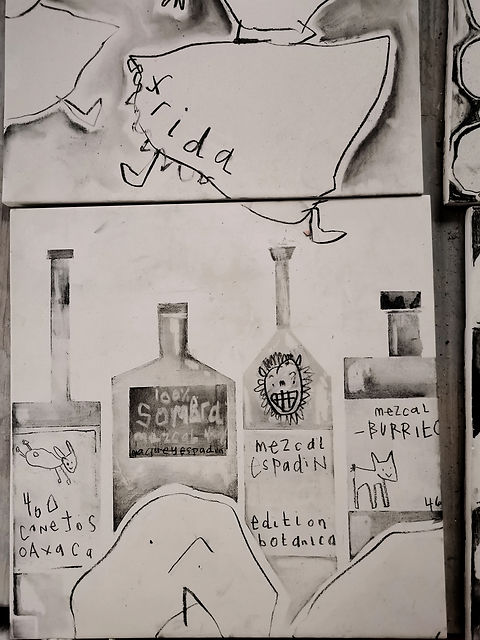 rida
100%
Sombra
mezcal
magueyespadin
400
conejos
oaxaca
mezcal
Espadin
edition
botanica
mezcal
-BURRITO
46